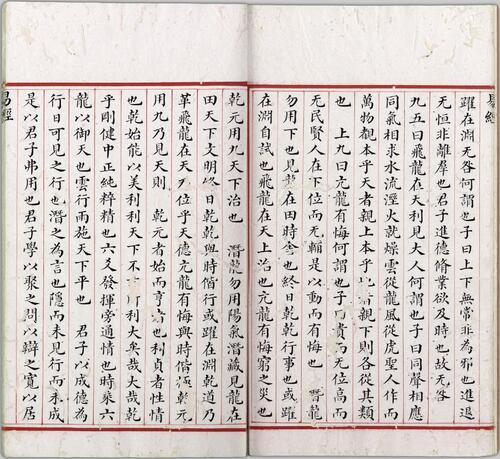 易經
躍在淵无咎何謂也子曰上下無常非為邪也進退
无恒非離羣也君子進德脩業欲及時也故无咎
九五曰飛龍在天利見大人何謂也子曰同聲相應
同氣相求水流溼火就燥雲從龍風從虎聖人作而
萬物覩本乎天者親上本乎者親下則各從其類
也 上九曰亢龍有悔何謂也子曰貴而无位高而
无民賢人在下位而无輔是以動而有悔也 潛龍
勿用下也見龍在田時舍也終日乾乾行事也或躍
在淵自試也飛龍在天上治也亢龍有悔窮之災也
乾元用九天下治也 潛龍勿用陽氣潛藏見龍在
田天下文明終日乾乾與時偕行或躍在淵乾道乃
革飛龍在天位乎天德亢龍有悔與時偕極乾元
用九乃見天則 乾元者始而亨者也利貞者性情
也乾始能以美利利天下不利大矣哉大哉乾
乎剛健中正純粹精也六爻發揮旁通情也時乘六
龍以御天也雲行雨施天下平也 君子以成德為
行日可見之行也潛之為言也隱而未見行而未成
是以君子弗用也君子學以聚之問以辯之寬以居
易經